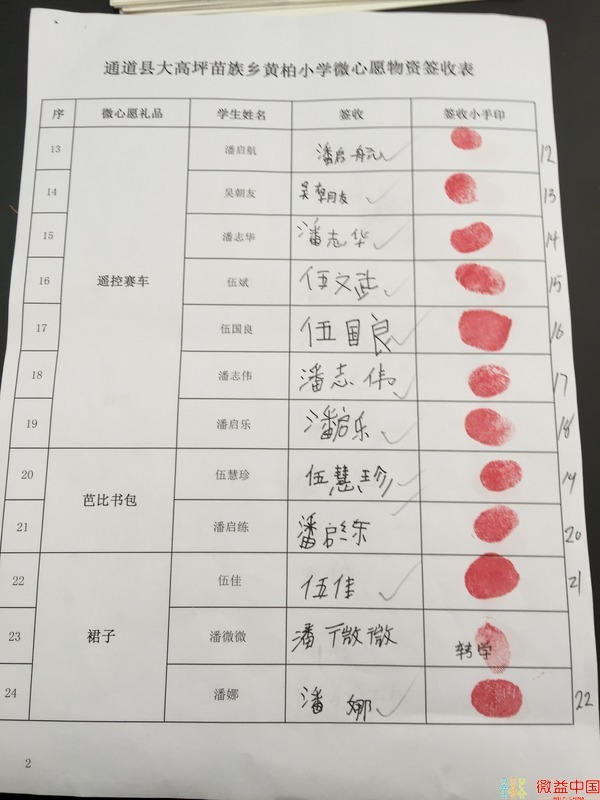 通道县大高坪苗族乡黄柏小学微心愿物资签收表
序 微心愿礼品 学生姓名 签收 签收小手印
13 潘启航 潘启航 12
14 吴朝友 吴朝友 13
15 潘志华 潘志华 14
遥控赛车
16 伍斌 伍文武 15
17 伍国良 伍国良 16
18 潘志伟 潘志伟 17
19 潘启乐 潘启乐 18
20 伍慧珍 伍慧珍 19
芭比书包
21 潘启练 潘启练 20
22 伍佳 伍佳 21
裙子
23 潘微微 潘微微 转学
24 潘娜 潘娜 22
2
微益中国